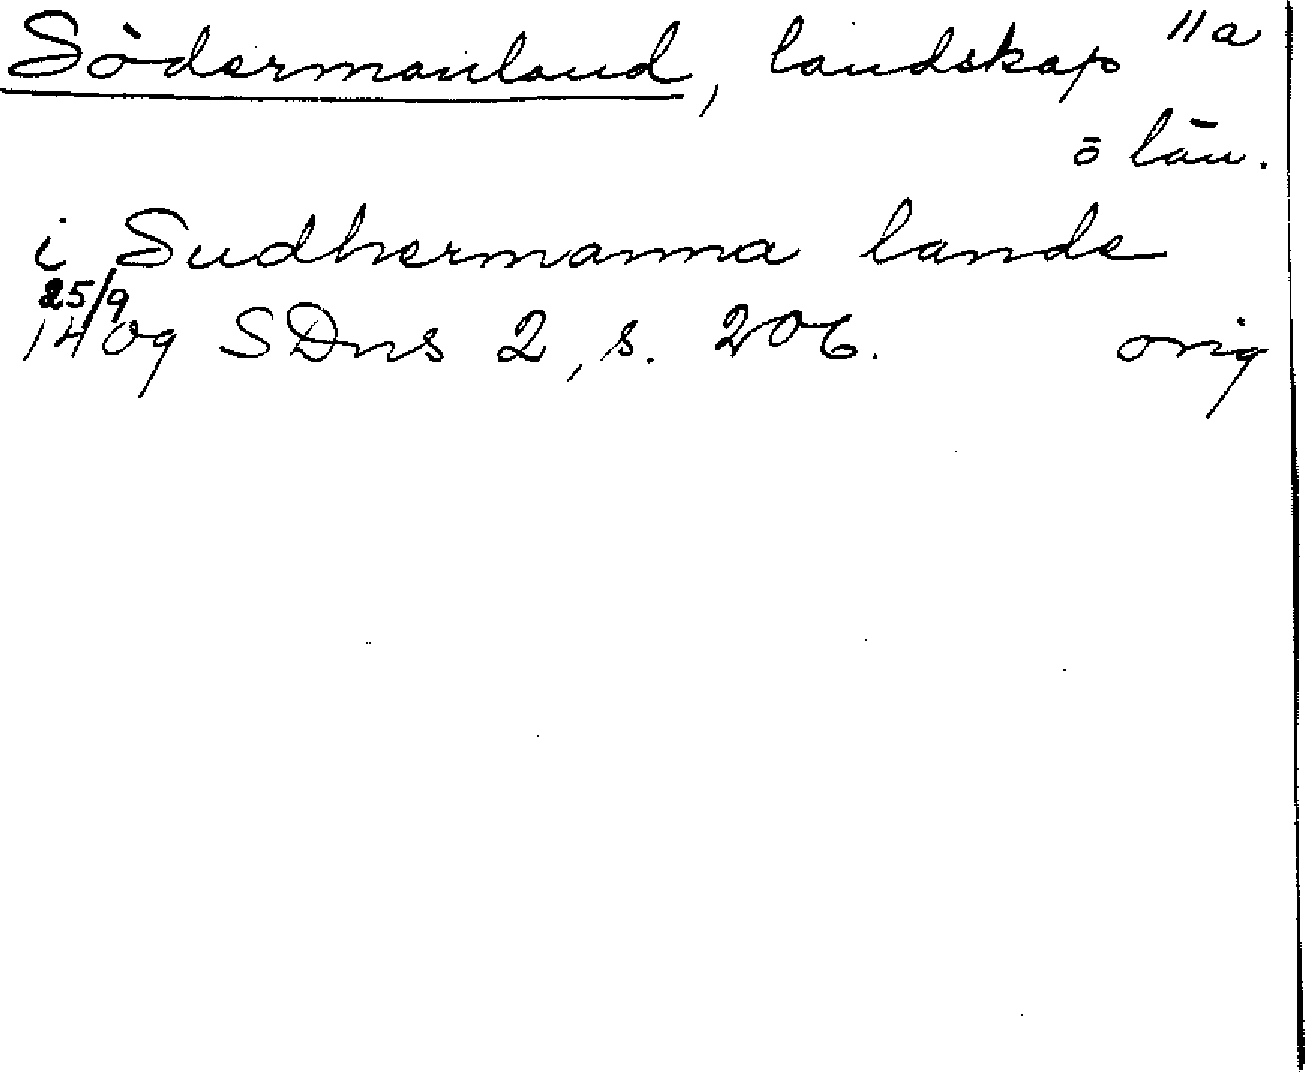 Södermanland, landskap 11a
o län.
i Sudhermanna lande
25/9
1409 SDns 2, s. 206. orig